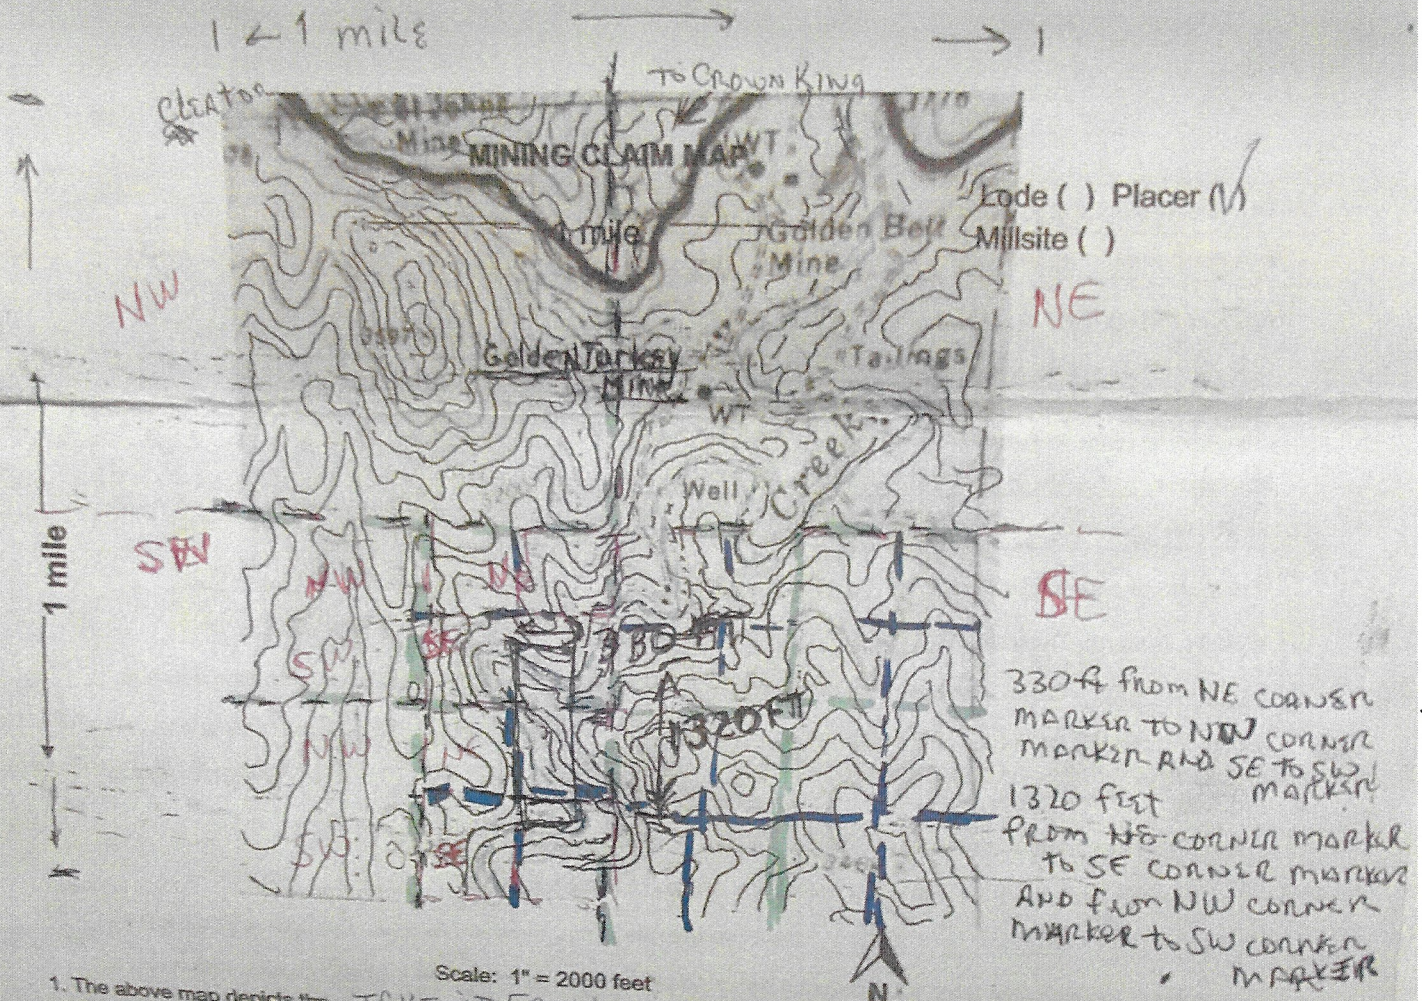 1 mile
TO CROWN KING
Cleator
Mine
MINING CLAIM MAP
WT
Lode ( ) Placer (√)
Millsite ( )
1 mile
Golden Belt
Mine
NW
NE
3597
Golden Turkey
Mine
Tailings
WT
Creek
Well
1 mile
SW
SE
NW
NE
SW
SE
330 FT
1320 FT
NW
NE
SW
SE
330 ft from NE CORNER
MARKER TO NW CORNER
MARKER AND SE TO SW
MARKER
1320 feet
from NE CORNER MARKER
TO SE CORNER MARKER
AND from NW CORNER
MARKER to SW CORNER
MARKER
Scale: 1" = 2000 feet
N
1. The above map depicts the